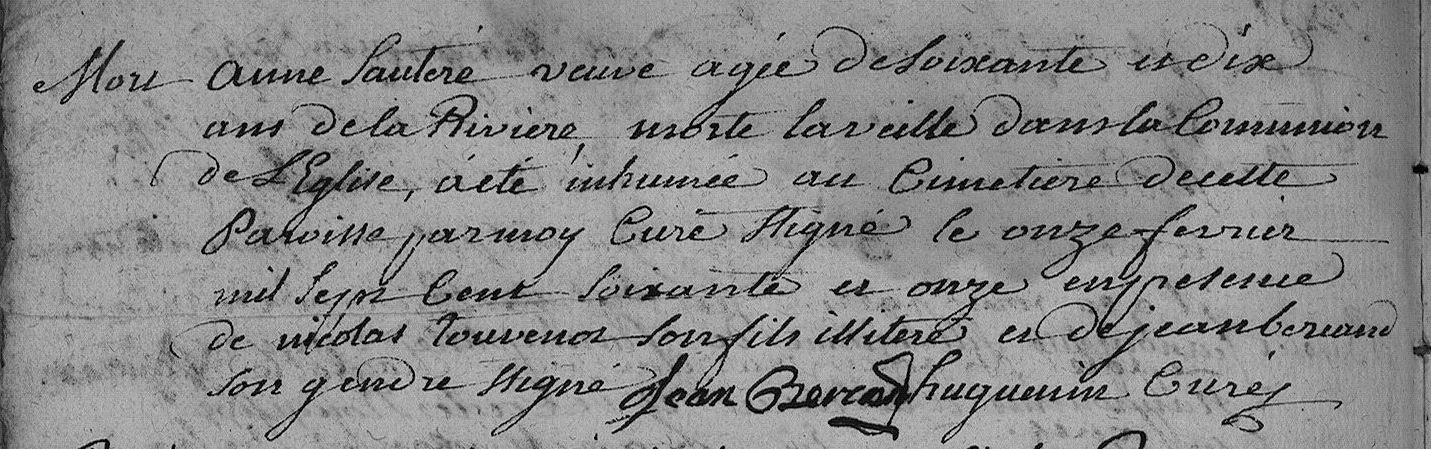 Mort Anne Sauteré veuve agée de Soixante et dix
ans de la Riviere, morte la veille dans la Communion
de L'Eglise, a été inhumée au Cimetiere de cette
Paroisse par moy Curé Sligné le onze fevrier
mil Sept Cent Soixante et onze en presence
de nicolas Touvenot Son fils illiteré et de jean bercand
Son gendre Sligné Jean Bercand huguenin Curé